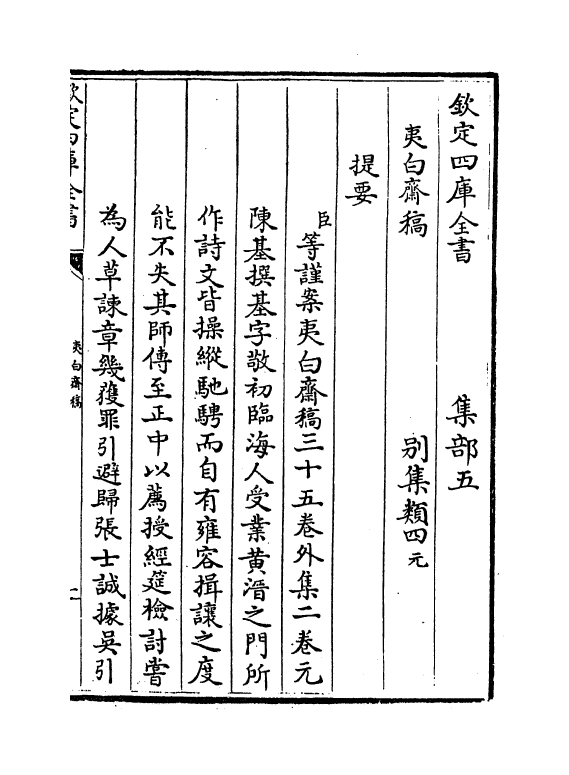 欽定四庫全書　集部五
夷白齋稿　別集類四元
提要
臣等謹案夷白齋稿三十五卷外集二卷元
陳基撰基字敬初臨海人受業黃溍之門所
作詩文皆操縱馳騁而自有雍容揖讓之度
能不失其師傳至正中以薦授經筵檢討嘗
為人草諫章幾獲罪引避歸張士誠據吳引
欽定四庫全書
夷白齋稿